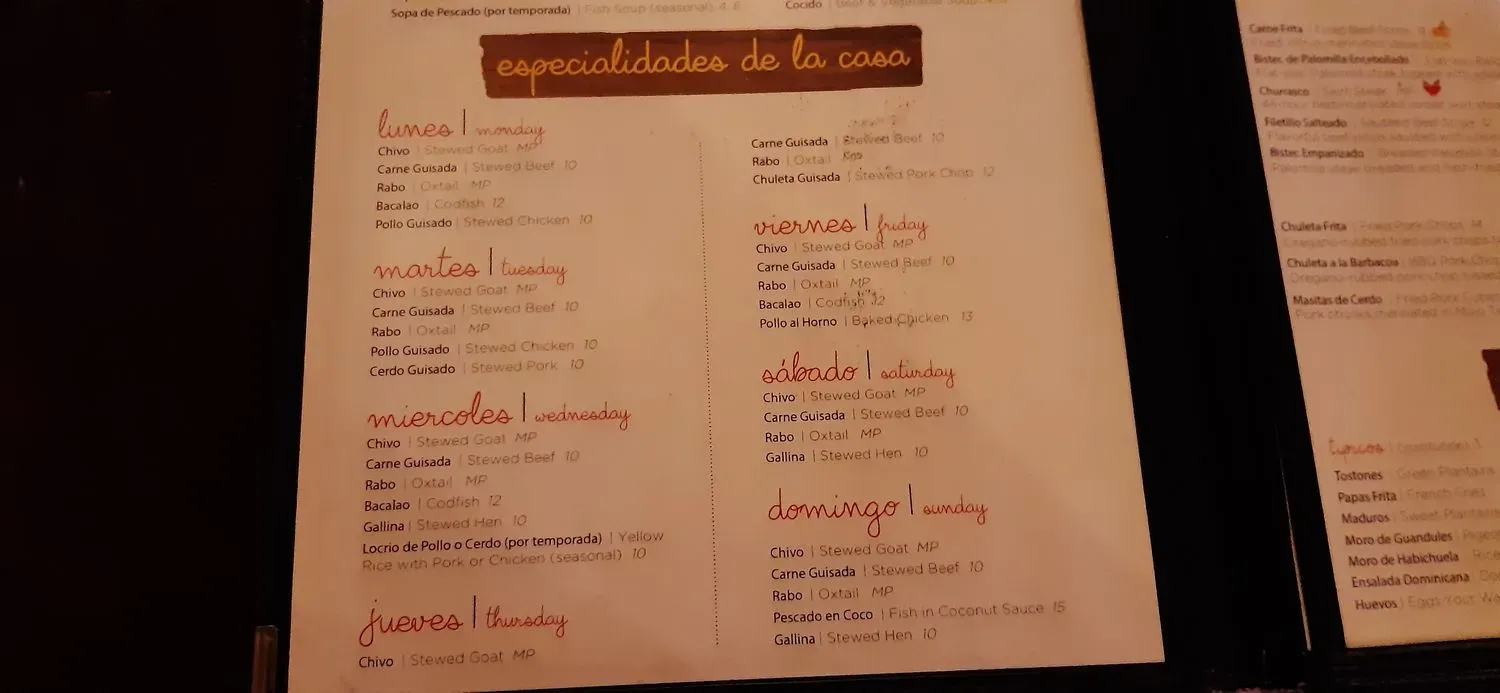 Sopa de Pescado (por temporada) | Fish Soup (seasonal) 4 6
Cocido | Beef & Vegetable
especialidades de la casa
lunes | monday
Chivo | Stewed Goat MP
Carne Guisada | Stewed Beef 10
Rabo | Oxtail MP
Bacalao | Codfish 12
Pollo Guisado | Stewed Chicken 10
martes | tuesday
Chivo | Stewed Goat MP
Carne Guisada | Stewed Beef 10
Rabo | Oxtail MP
Pollo Guisado | Stewed Chicken 10
Cerdo Guisado | Stewed Pork 10
miercoles | wednesday
Chivo | Stewed Goat MP
Carne Guisada | Stewed Beef 10
Rabo | Oxtail MP
Bacalao | Codfish 12
Gallina | Stewed Hen 10
Locrio de Pollo o Cerdo (por temporada) | Yellow
Rice with Pork or Chicken (seasonal) 10
jueves | thursday
Chivo | Stewed Goat MP
Carne Guisada | Stewed Beef 10
Rabo | Oxtail
Chuleta Guisada | Stewed Pork Chop 12
viernes | friday
Chivo | Stewed Goat MP
Carne Guisada | Stewed Beef 10
Rabo | Oxtail MP
Bacalao | Codfish 12
Pollo al Horno | Baked Chicken 13
sábado | saturday
Chivo | Stewed Goat MP
Carne Guisada | Stewed Beef 10
Rabo | Oxtail MP
Gallina | Stewed Hen 10
domingo | sunday
Chivo | Stewed Goat MP
Carne Guisada | Stewed Beef 10
Rabo | Oxtail MP
Pescado en Coco | Fish in Coconut Sauce 15
Gallina | Stewed Hen 10
Carne Frita | Fried Beef
Bistec de Palomilla Encebollado
Churrasco | Skirt Steak
Filetillo Salteado
Bistec Empanizado
Chuleta Frita | Fried Pork Chops 14
Oregano-rubbed fried pork chops
Chuleta a la Barbacoa | BBQ Pork Chop
Oregano-rubbed pork chop
Masitas de Cerdo | Fried Pork
Pork chunks marinated in
typicos
Tostones | Green Plantains
Papas Frita | French Fries
Maduros | Sweet Plantains
Moro de Guandules
Moro de Habichuela | Rice
Ensalada Dominicana
Huevos | Eggs Your